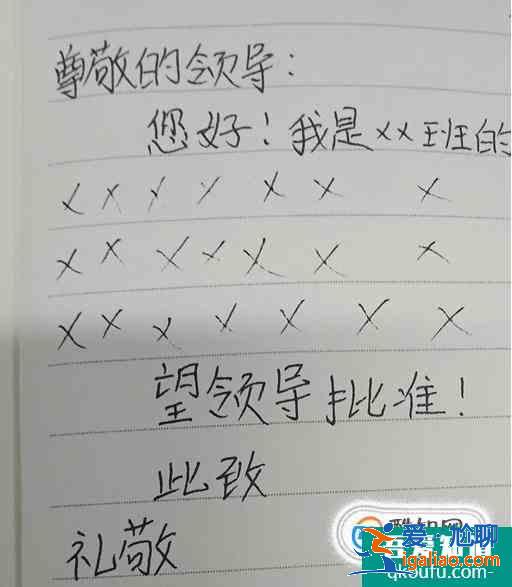 尊敬的领导：
您好！我是xx班的
x x x x x x x
x x x x x x x
x x x x x x x
望领导批准！
此致
礼敬
爱尴聊
igaliao.com
qkSufu.com